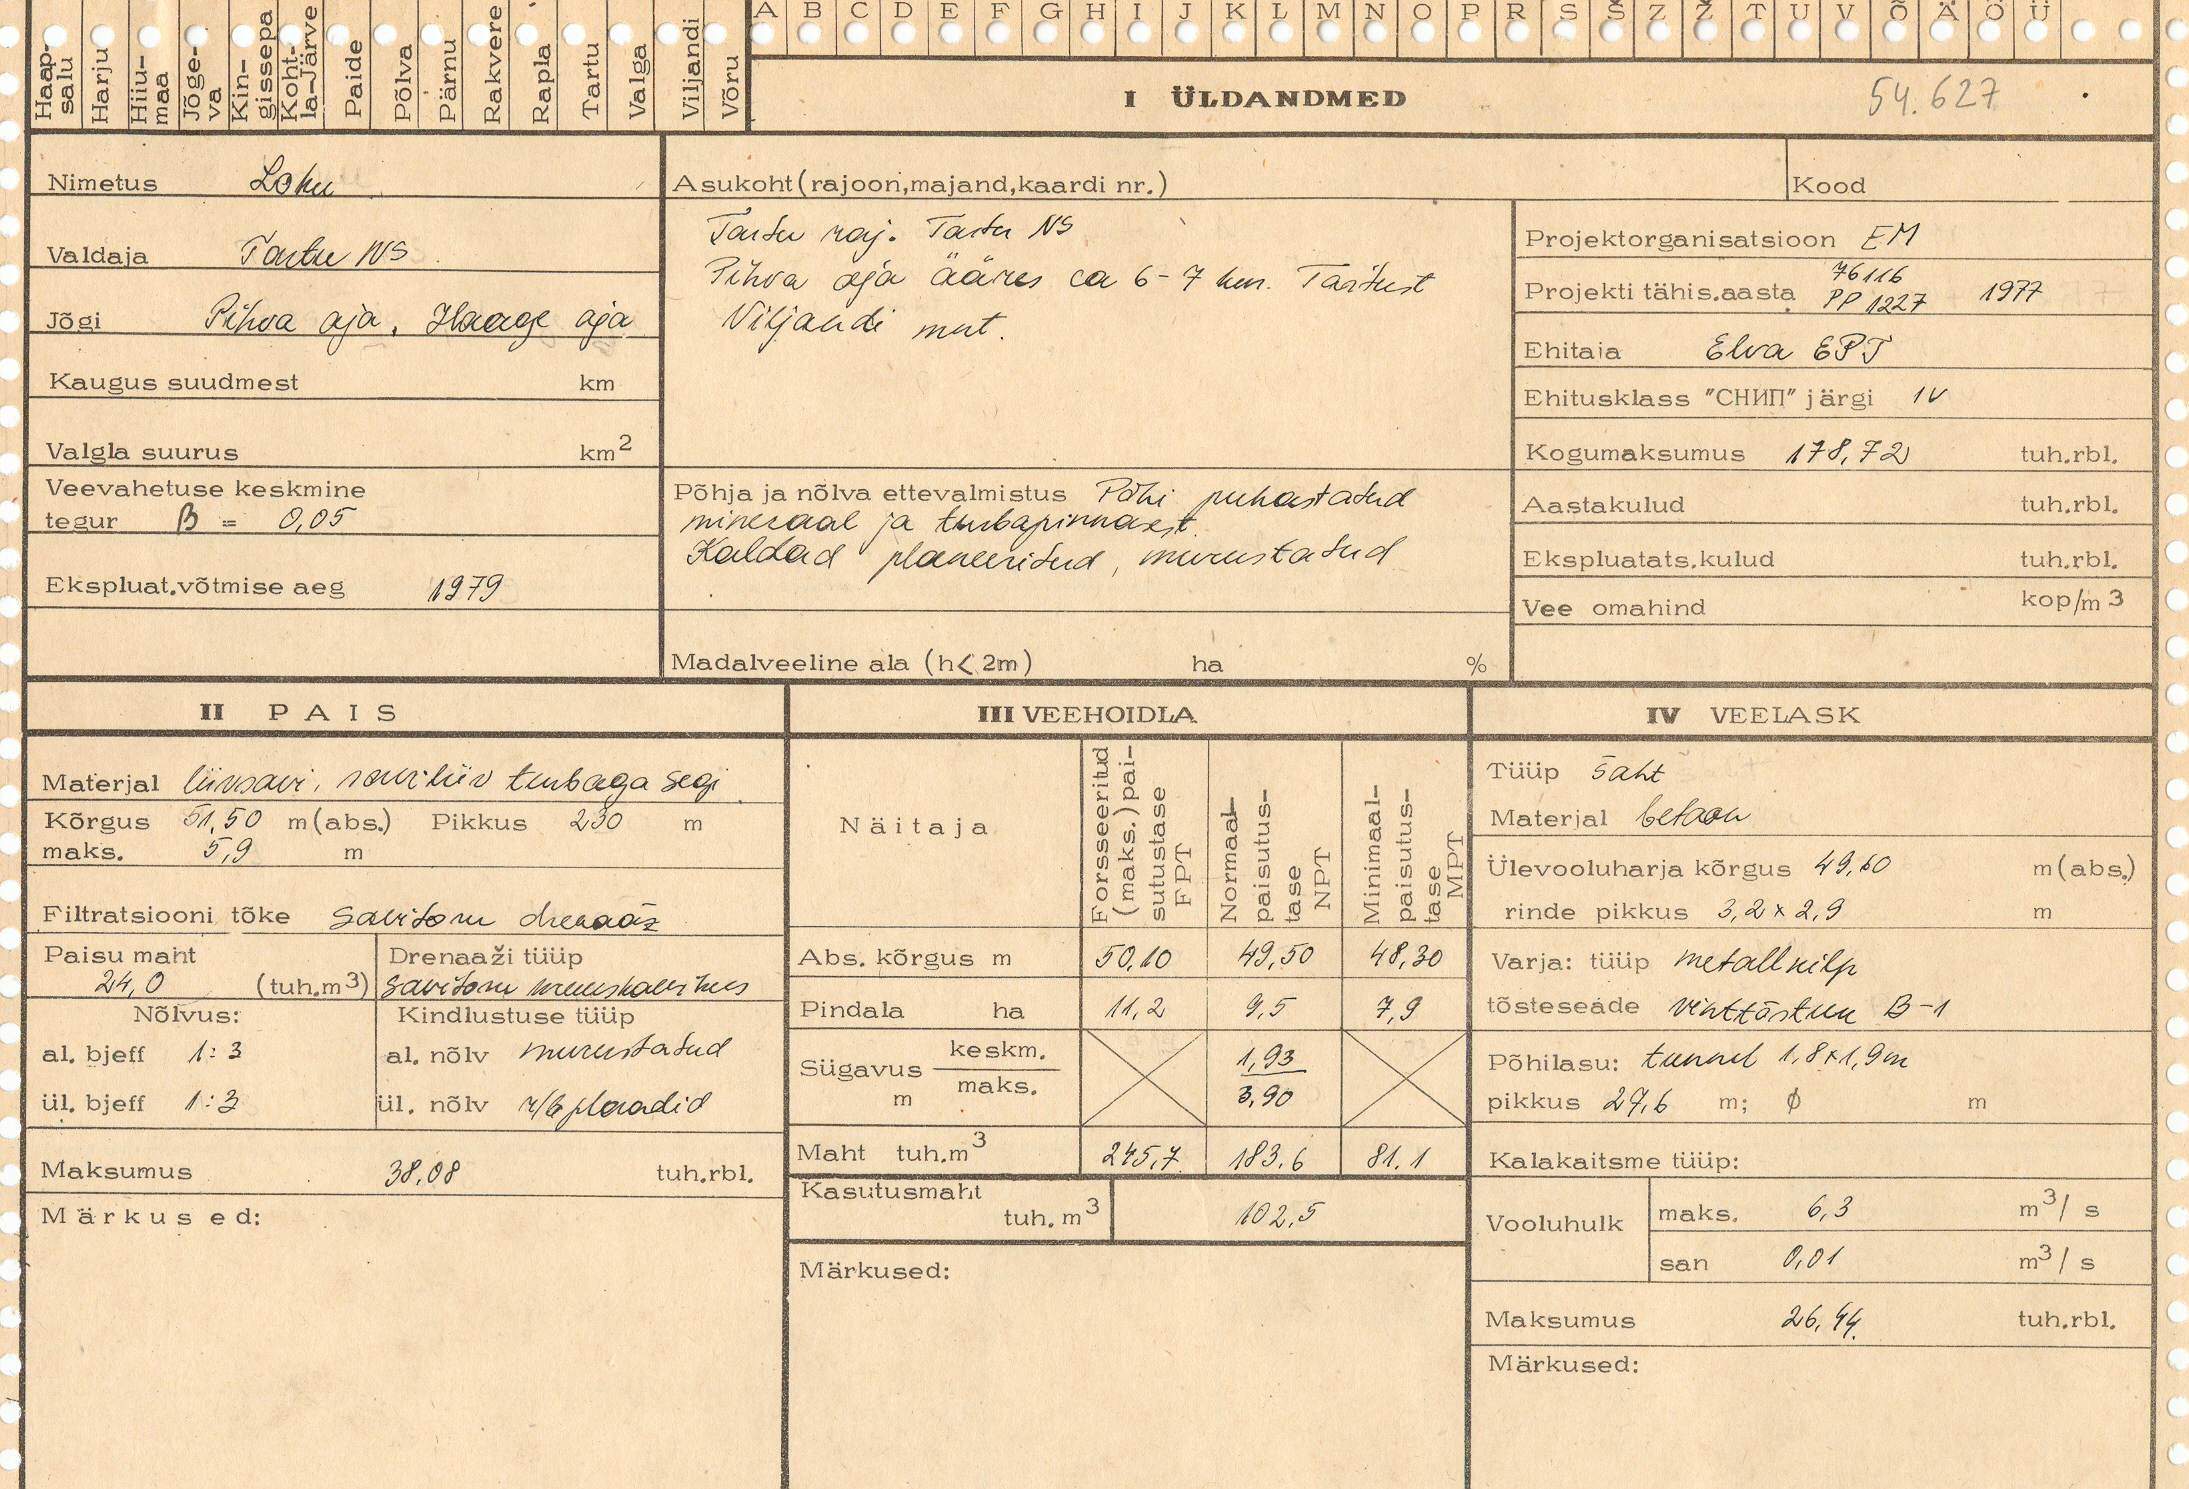 A B C D E F G H I J K L M N O P R S Š Z Ž T U V Õ Ä Ö Ü
Haap-
salu
Harju
Hiiu-
maa
Jõge-
va
Kin-
gissepa
Koht-
la-Järve
Paide
Põlva
Pärnu
Rakvere
Rapla
Tartu
Valga
Viljandi
Võru
I ÜLDANDMED 54.627
Nimetus Loku
Valdaja Tartu NS
Jõgi Pihva oja, Haage oja
Kaugus suudmest km
Valgla suurus km2
Veevahetuse keskmine
tegur β = 0,05
Ekspluat.võtmise aeg 1979
Asukoht(rajoon,majand,kaardi nr.)
Tartu raj. Tartu NS
Pihva oja ääres ca 6-7 km. Tartust
Viljandi mnt.
Põhja ja nõlva ettevalmistus Põhi puhastatud
mineraal ja turbapinnasest.
Kaldad planeeritud, murustatud
Madalveeline ala (h< 2m) ha %
Kood
Projektorganisatsioon EM
Projekti tähis.aasta 76116
PP 1227 1977
Ehitaja Elva EPT
Ehitusklass "СНИП" järgi IV
Kogumaksumus 178,72 tuh.rbl.
Aastakulud tuh.rbl.
Ekspluatats.kulud tuh.rbl.
Vee omahind kop/m3
II PAIS
Materjal liivsavi, saviliiv turbaga segi
Kõrgus 51,50 m(abs.) Pikkus 230 m
maks. 5,9 m
Filtratsiooni tõke savitoru drenaaž
Paisu maht
24,0 (tuh.m3)
Drenaaži tüüp
savitoru
Nõlvus:
al. bjeff 1:3
ül. bjeff 1:3
Kindlustuse tüüp
al. nõlv murustatud
ül. nõlv r/b plaadid
Maksumus 38,08 tuh.rbl.
Märkused:
III VEEHOIDLA
Näitaja
Forsseeritud
(maks.)pai-
sutustase
FPT
Normaal-
paisutus-
tase
NPT
Minimaal-
paisutus-
tase
MPT
Abs. kõrgus m 50,10 49,50 48,30
Pindala ha 11,2 9,5 7,9
Sügavus keskm. 1,93
m maks. 3,90
Maht tuh.m3 245,7 183,6 81,1
Kasutusmaht
tuh. m3 102,5
Märkused:
IV VEELASK
Tüüp šaht
Materjal betoon
Ülevooluharja kõrgus 49,60 m(abs.)
rinde pikkus 3,2 x 2,9 m
Varja: tüüp metallkilp
tõsteseade vinttõstuk B-1
Põhilasu: tunnel 1,8x1,9m
pikkus 27,6 m; ϕ m
Kalakaitsme tüüp:
Vooluhulk maks. 6,3 m3/ s
san 0,01 m3/ s
Maksumus 26,44 tuh.rbl.
Märkused: